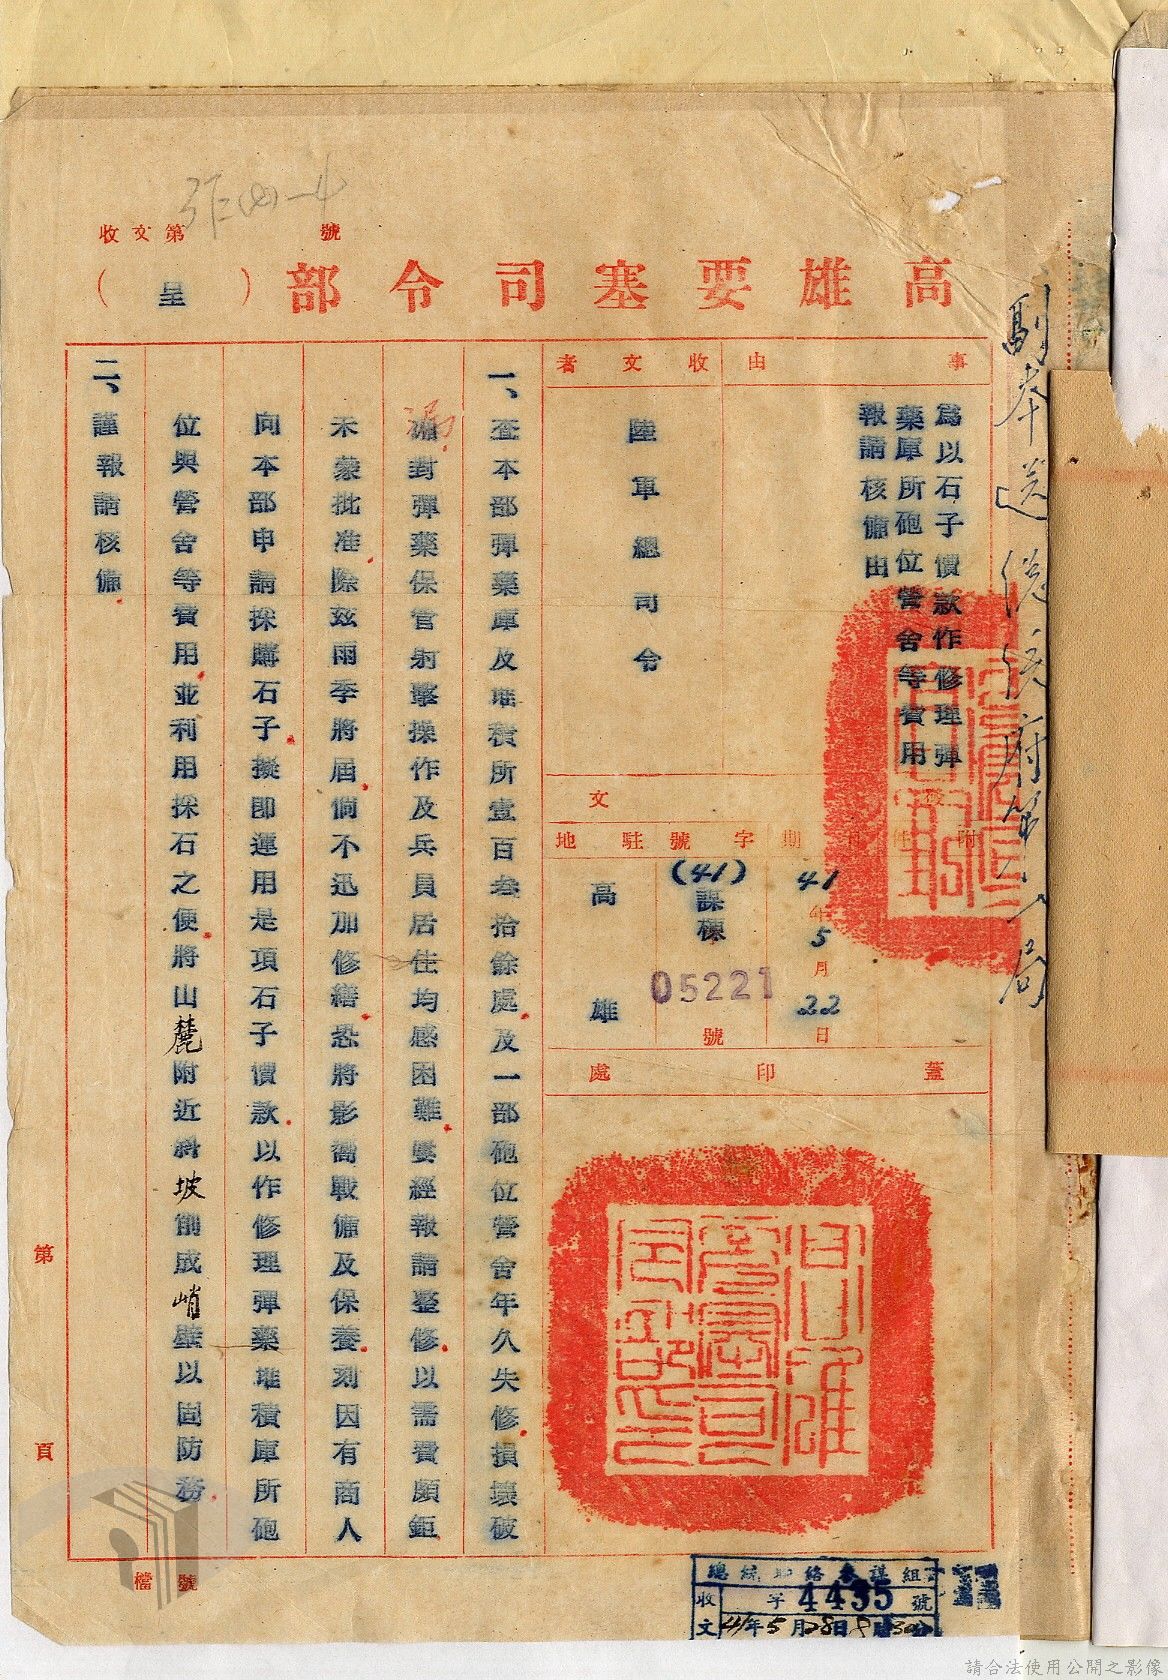 收文第 號
高雄要塞司令部（呈）
副本送總統府第二局
事由
為以石子價款作修理彈
藥庫所砲位營舍等費用
報請核備由
收文者
陸軍總司令
附件
日期
41年5月22日
字號
(41)謀棟
05221號
駐地
高雄
蓋印處
一、查本部彈藥庫及堆積所壹百叁拾餘處及一部砲位營舍年久失修損壞破
漏對彈藥保管射擊操作及兵員居住均感困難屢經報請整修以需費頗鉅
未蒙批准除茲雨季將屆倘不迅加修繕恐將影嚮戰備及保養刻因有商人
向本部申請採購石子擬即運用是項石子價款以作修理彈藥堆積庫所砲
位與營舍等費用並利用採石之便將山麓附近斜坡削成峭壁以固防務
二、謹報請核備
第 頁
檔 號
總統聯絡參謀組
收文 字4435號
41年5月28日8時30分
請合法使用公開之影像